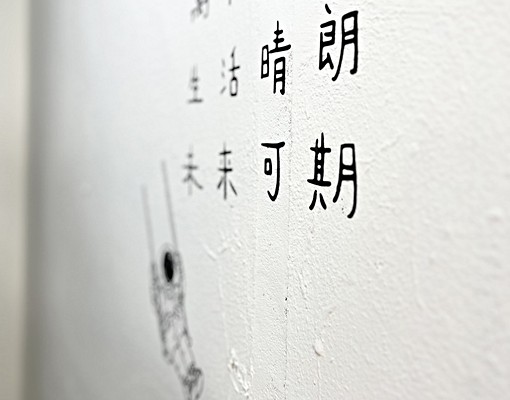 朗期
晴可
活来
生未